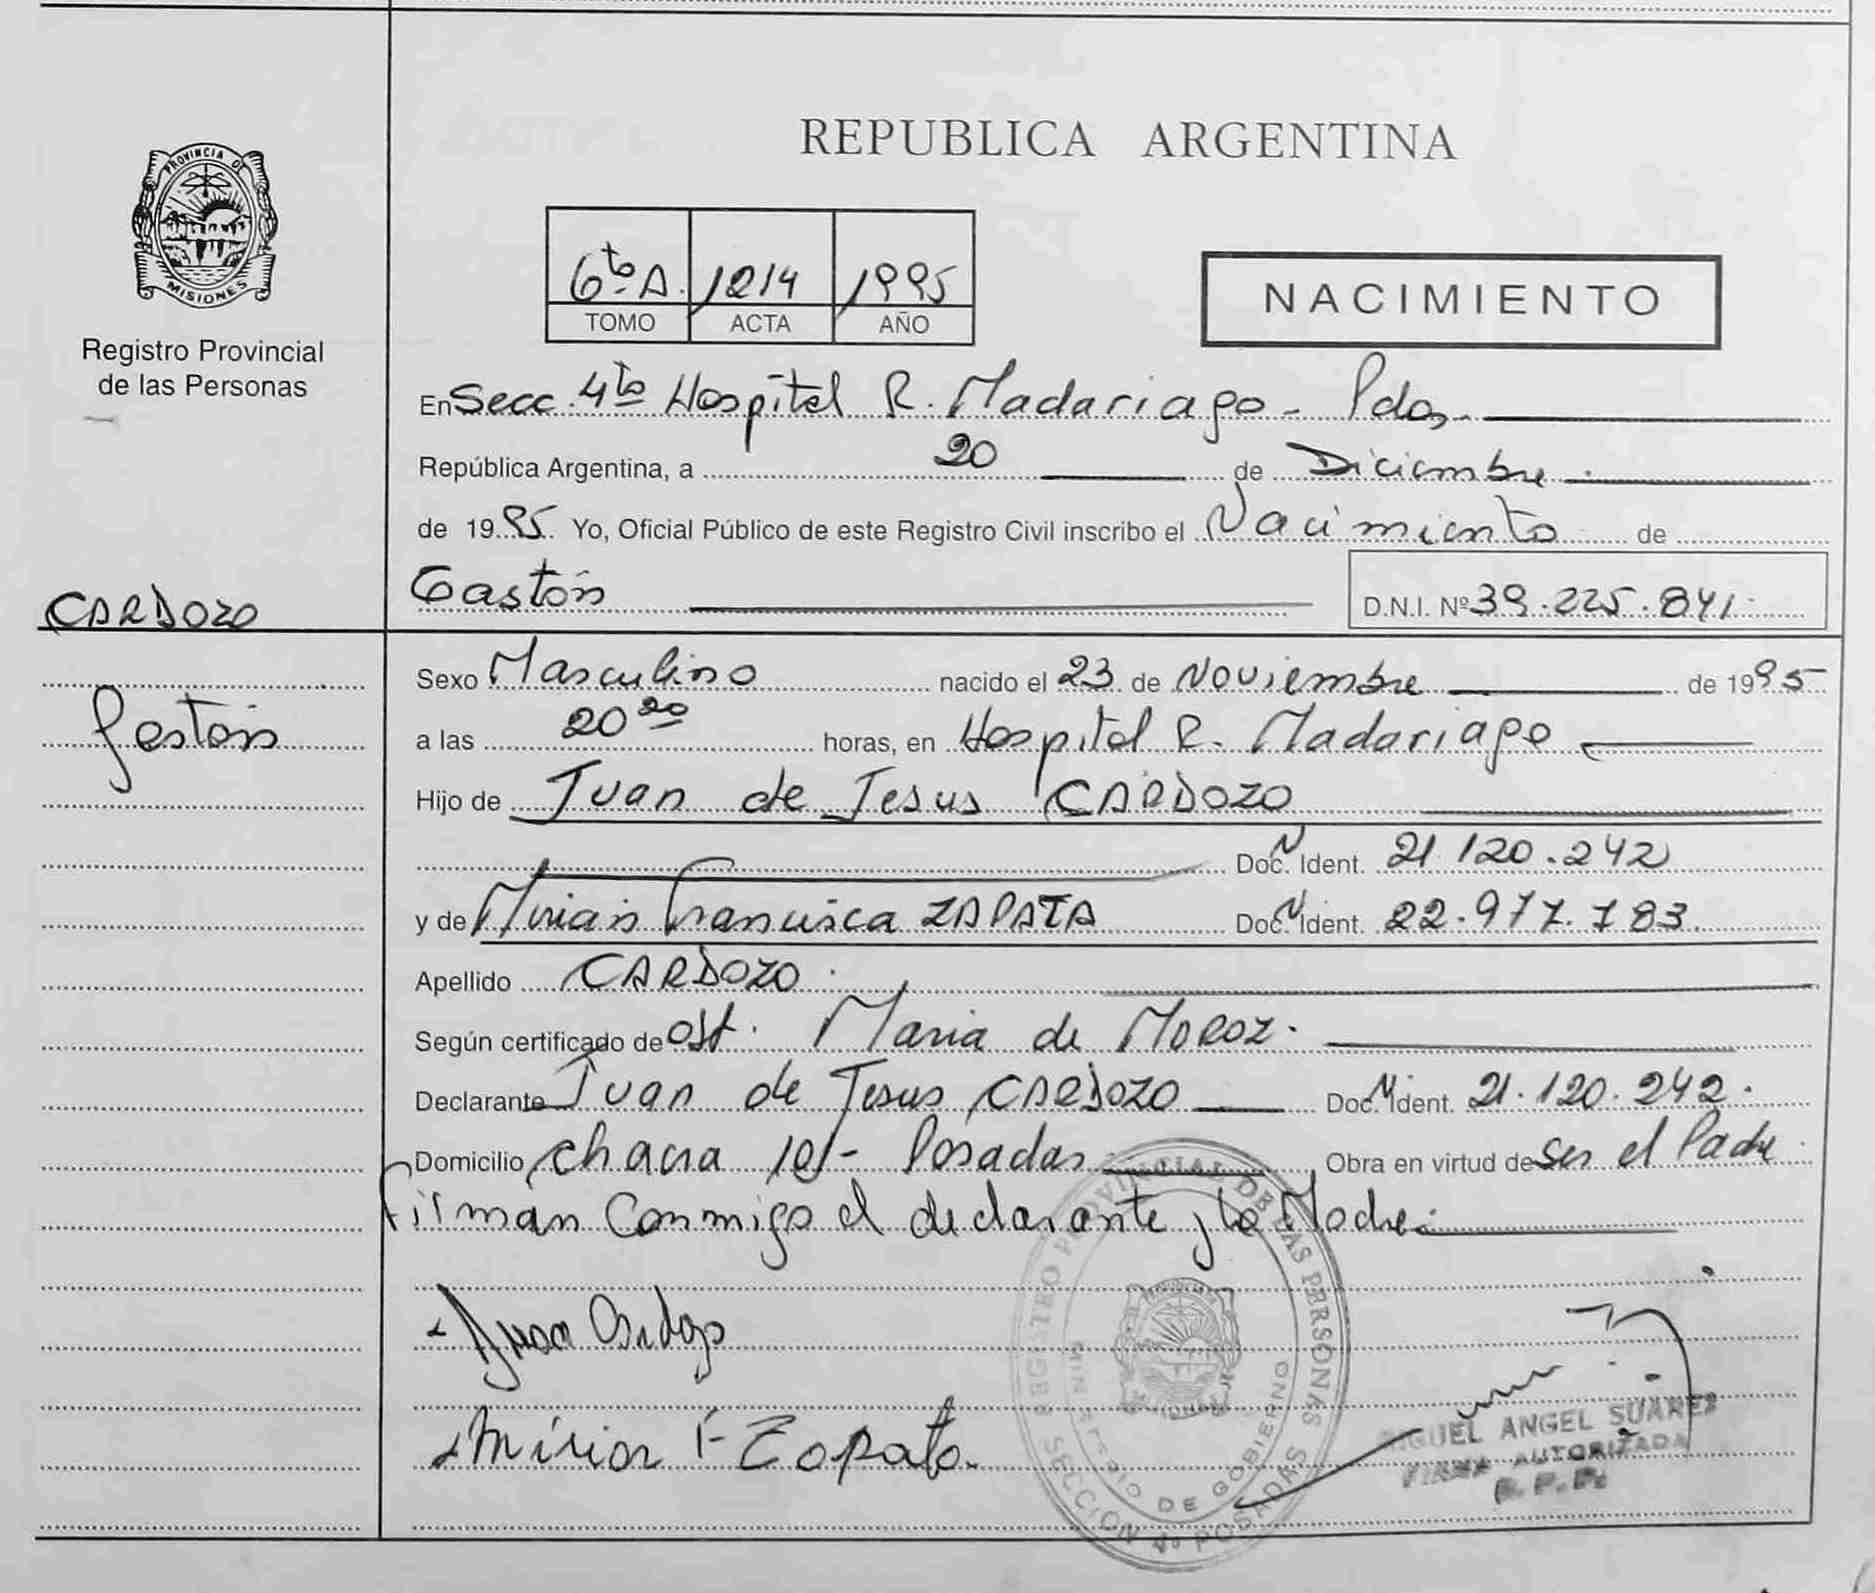 REPUBLICA ARGENTINA
PROVINCIA DE
MISIONES
Registro Provincial
de las Personas
6to A. 1214 1995
TOMO ACTA AÑO
NACIMIENTO
En Secc. 4ta Hospital R. Madariaga - Pdas.
República Argentina, a 20 de Diciembre
de 1995 Yo, Oficial Público de este Registro Civil inscribo el Nacimiento de
Gastón D.N.I. Nº 39.225.841
CARDOZO
Gastón
Sexo Masculino nacido el 23 de Noviembre de 1995
a las 20 20 horas, en Hospital R. Madariaga
Hijo de Juan de Jesus CARDOZO
Doc. N Ident. 21.120.242
y de Mirian Francisca ZAPATA Doc. N Ident. 22.977.783
Apellido CARDOZO
Según certificado de Ost. Maria de Moroz.
Declarante Juan de Jesus CARDOZO Doc. N Ident. 21.120.242.
Domicilio Chacra 101 - Posadas Obra en virtud de ser el Padre
Firman Conmigo el declarante y la Madre.
Mirian F Zapata.
REGISTRO PROVINCIAL DE LAS PERSONAS
MINISTERIO DE GOBIERNO
SECCION 4º POSADAS
MIGUEL ANGEL SUAREZ
FIRMA AUTORIZADA
R. P. P.